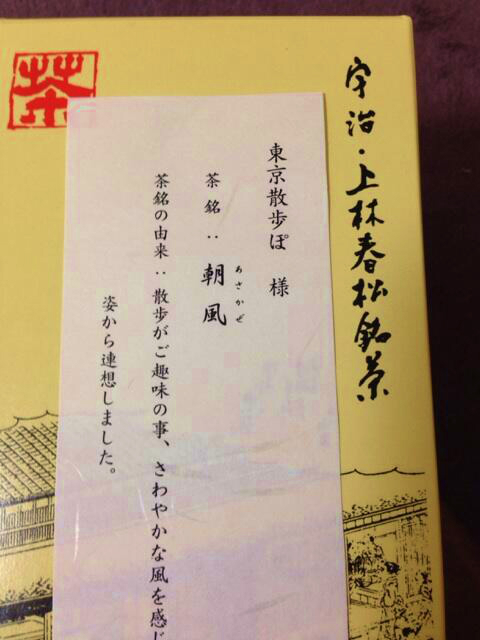 宇治・上林春松銘茶
茶
東京散歩ぽ 様
茶銘:朝風
あさかぜ
茶銘の由来:散歩がご趣味の事、さわやかな風を感じ
姿から連想しました。